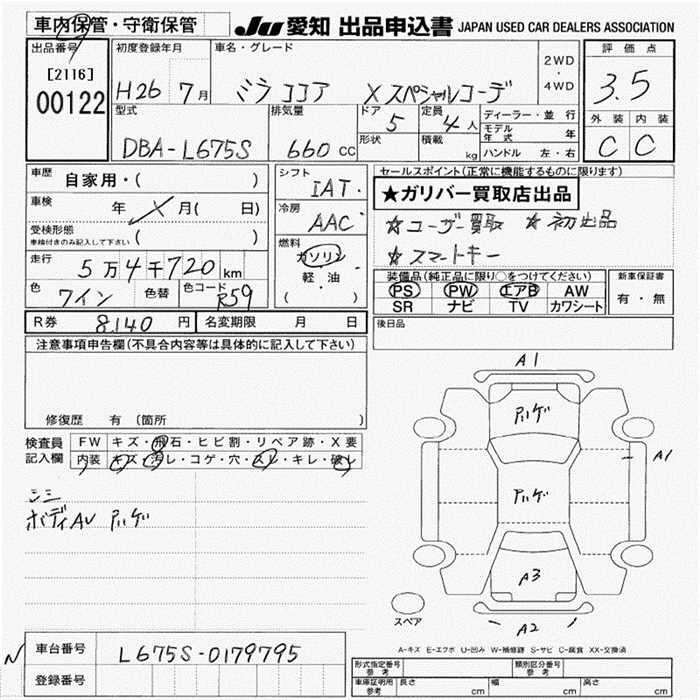 車内保管・守衛保管
JU 愛知 出品申込書 JAPAN USED CAR DEALERS ASSOCIATION
出品番号 初度登録年月 車名・グレード 2WD ・ 4WD 評価点
[2116]
00122 H26 7月 ミラ ココア Xスペシャルコーデ 3.5
型式 排気量 ドア 定員 ディーラー・並行 外装 内装
DBA-L675S 660 cc 5 4人 モデル年式 年 C C
形状 積載 kg ハンドル 左・右
車歴 自家用・( ) シフト IAT セールスポイント(正常に機能するものに限ります)
★ガリバー買取店出品
車検 年 月( 日) 冷房 AAC ☆ユーザー買取 ☆初出品
受検形態 ( )
車検付きのみ記入して下さい
燃料 ガソリン ☆スマートキー
走行 5万4千720km 軽・油 装備品(純正品に限り○をつけてください) 新車保証書
色 ワイン 色替 色コード R59 ( ) PS PW エアB AW 有・無
SR ナビ TV カワシート
R券 8,140 円 名変期限 月 日 後日品
注意事項申告欄(不具合内容等は具体的に記入して下さい)
修復歴 有 (箇所 )
検査員記入欄 FW キズ・飛石・ヒビ割・リペア跡・X要
内装 キズ・汚レ・コゲ・穴・スレ・キレ・破レ
シミ
ボディAU アルゲ
A1
アルゲ
A1
アルゲ
A3
スペア
A2
A-キズ E-エクボ U-凹み W-補修跡 S-サビ C-腐食 XX-交換済
N 車台番号 L675S-0179795
登録番号
形式指定番号 参考 類別区分番号 参考
車庫証明用 参考 長さ cm 幅 cm 高さ cm